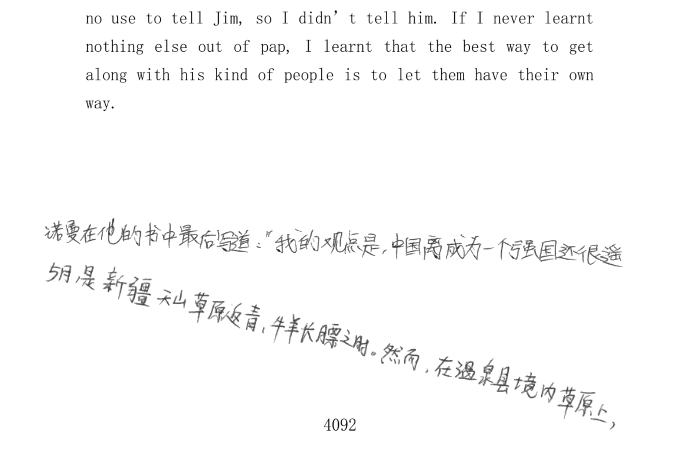 no use to tell Jim, so I didn't tell him. If I never learnt
nothing else out of pap, I learnt that the best way to get
along with his kind of people is to let them have their own
way.
诺曼在他的书中最后写道："我的观点是,中国离成为一个强国还很遥
5月,是新疆天山草原返青,牛羊长膘之时。然而,在温泉县境内草原上,
4092